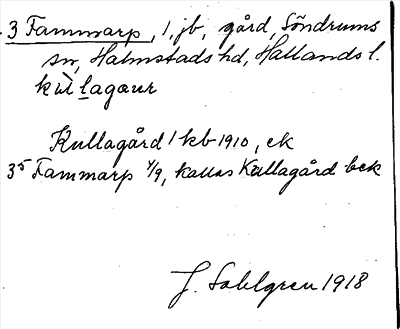 3 Fammarp, 1, jb, gård, Söndrums
sn, Halmstads hd, Hallands l.
kùlagaur
Kullagård 1 kb 1910, ek
3⁵ Fammarp 4/9, kallas Kullagård bek
J. Sahlgren 1918